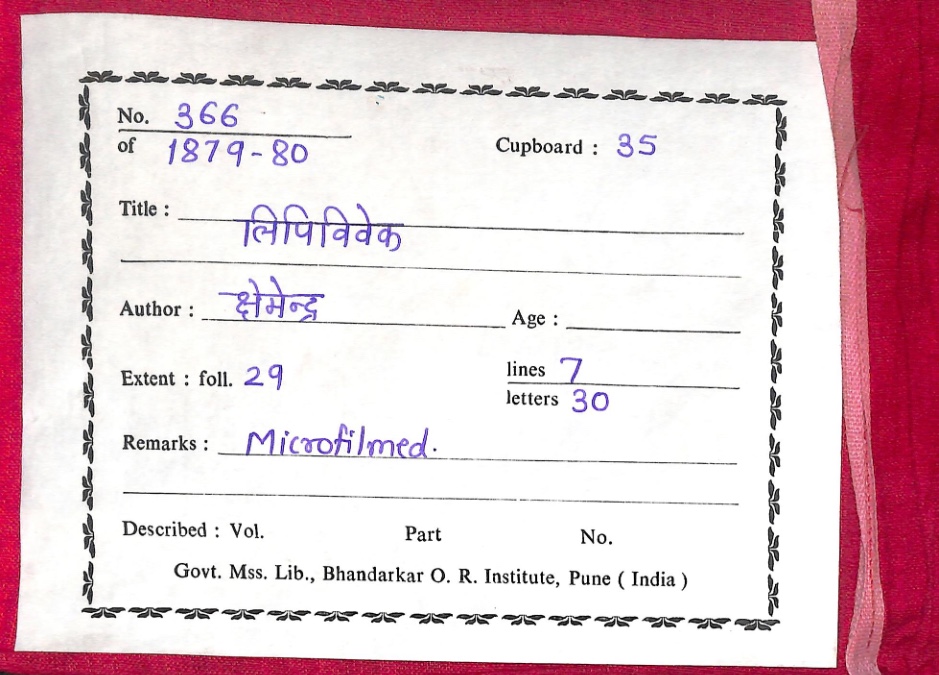 No. 366
of 1879-80
Cupboard : 35
Title : लिपिविवेक
Author : क्षेमेन्द्र
Age :
Extent : foll. 29
lines 7
letters 30
Remarks : Microfilmed.
Described : Vol. Part No.
Govt. Mss. Lib., Bhandarkar O. R. Institute, Pune ( India )